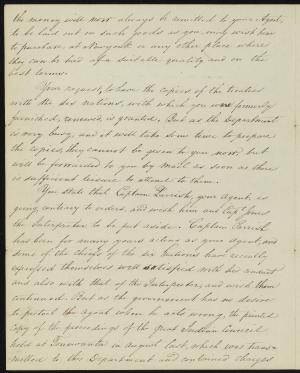 the money will now always be remitted to your Agent,
to be laid out on such goods as you may wish him
to purchase, at New york or any other place where
they can be had of a suitable quality and on the
best terms.
Your request, to have the copies of the treaties
with the six nations, with which you were formerly
furnished, renewed is granted. But as the Department
is very busy, and it will take some time to prepare
the copies, they cannot be given to you now, but
will be forwarded to you by mail as soon as there
is sufficient leisure to attend to them.
You state that Captain Parrish, your agent, is
going contrary to orders, and wish him and Capt. Jones
the Interpreter to be put aside. Captain Parrish
has been for many years acting as your agent, and
some of the chiefs of the six Nations have recently
expressed themselves well satisfied with his conduct
and also with that of the Interpreter, and wish them
continued. But as the government has no desire
to protect the agent when he acts wrong, the printed
copy of the proceedings of the great Indian Council
held at Tonnewanta in August last, which was trans-
mitted to this Department and contained charges